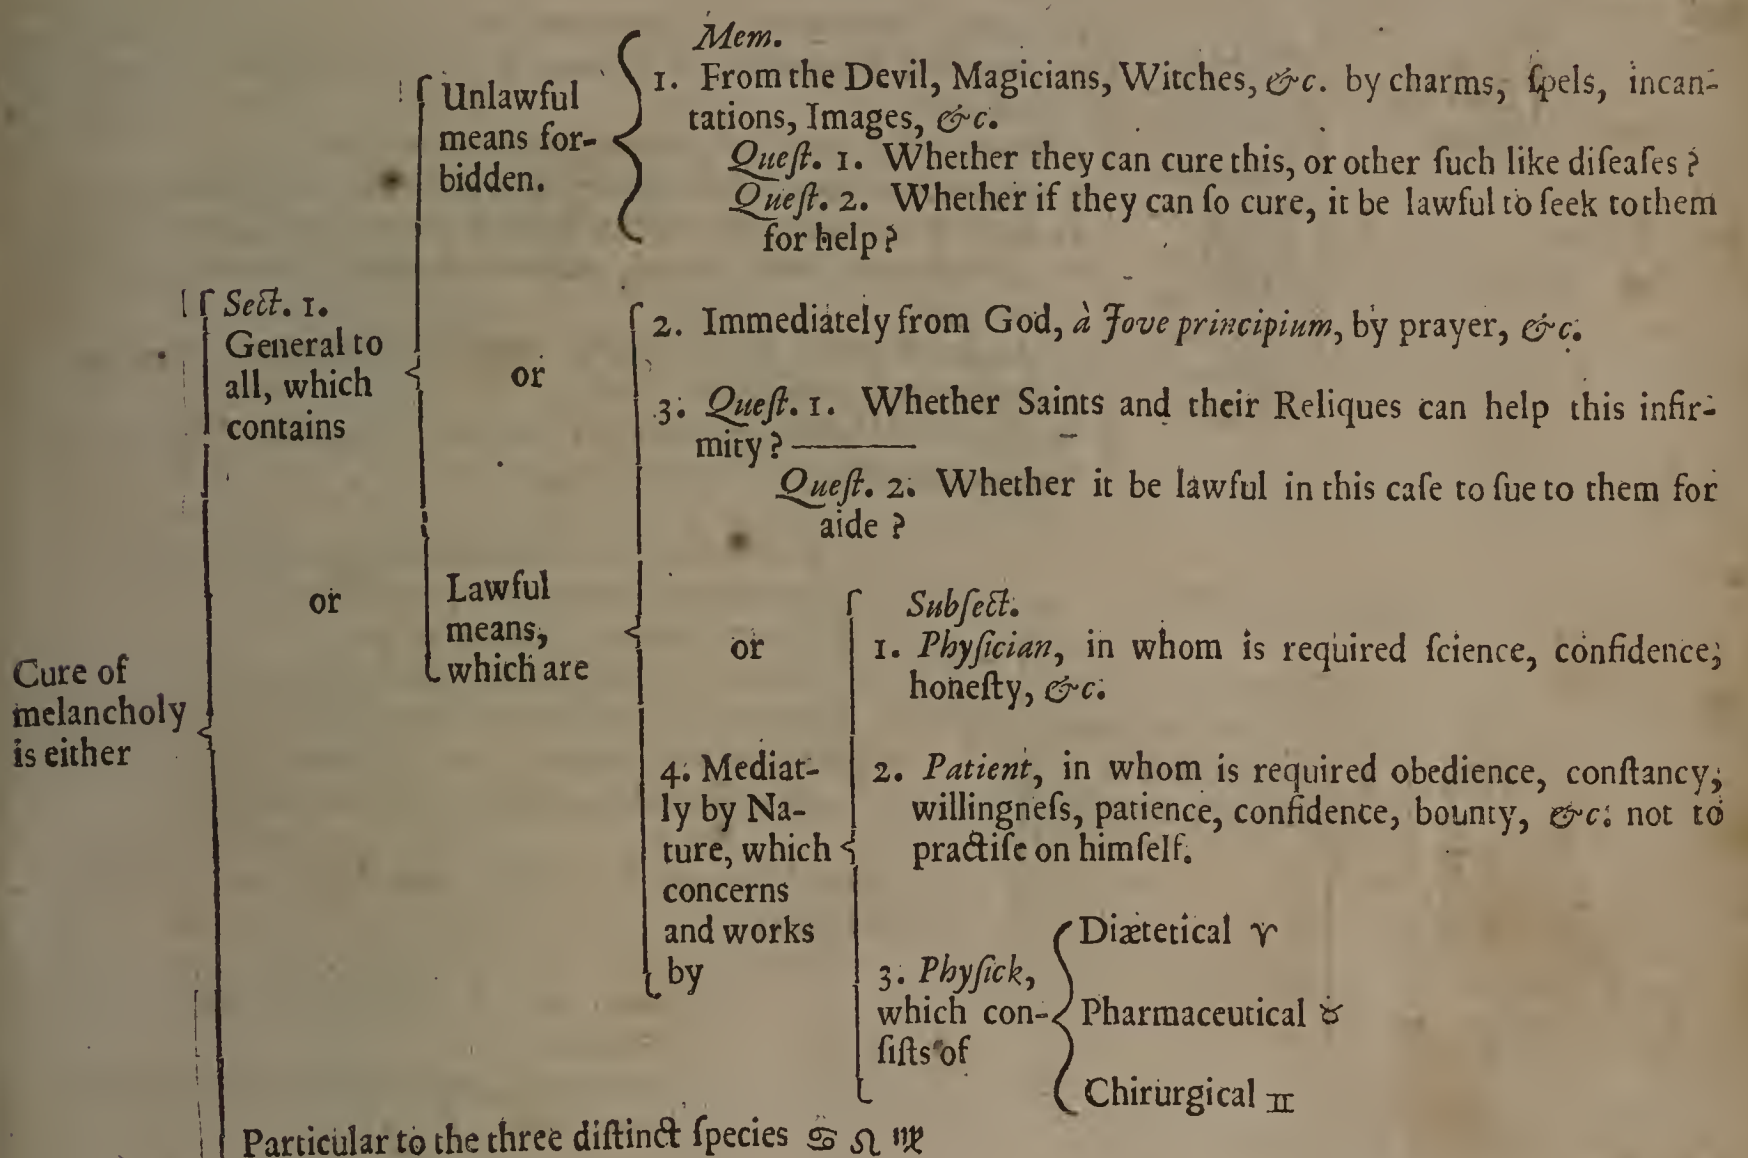 Cure of
melancholy
is either
Sect. 1.
General to
all, which
contains
or
Unlawful
means for-
bidden.
Mem.
1. From the Devil, Magicians, Witches, &c. by charms, ſpels, incan-
tations, Images, &c.
Queſt. 1. Whether they can cure this, or other ſuch like diſeaſes?
Queſt. 2. Whether if they can ſo cure, it be lawful to ſeek to them
for help?
or
Lawful
means,
which are
2. Immediately from God, à Jove principium, by prayer, &c.
3. Queſt. 1. Whether Saints and their Reliques can help this infir-
mity?
Queſt. 2. Whether it be lawful in this caſe to ſue to them for
aide?
or
4. Mediat-
ly by Na-
ture, which
concerns
and works
by
Subſect.
1. Phyſician, in whom is required ſcience, confidence,
honeſty, &c.
2. Patient, in whom is required obedience, conſtancy,
willingneſs, patience, confidence, bounty, &c. not to
practiſe on himſelf.
3. Phyſick,
which con-
ſiſts of
Diætetical ♈
Pharmaceutical ♉
Chirurgical ♊
Particular to the three diſtinct ſpecies ♋ ♌ ♍